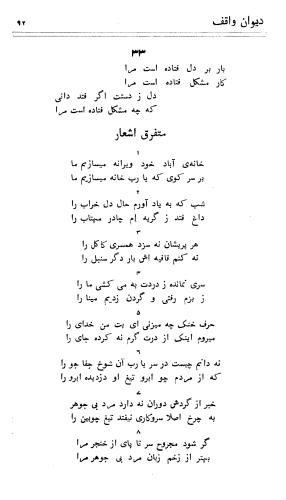 دیوان واقف
۹۲
۳۳
بار بر دل فتاده است مرا
کار مشکل فتاده است مرا
دل ز دستت اگر فتد دانی
که چه مشکل فتاده است مرا
متفرق اشعار
۱
خانه‌ی آباد خود ویرانه میسازیم ما
بر سر کوی که یا رب خانه میسازیم ما
۲
شب که به یاد آورم حال دل خراب را
داغ فتد ز گریه ام چادر مهتاب را
۳
هر پریشان نه سزد همسری کاکل را
نه کنم قافیه اش بار دگر سنبل را
۴
سری نمانده ز دردت به می کشی ما را
ز بزم رفتی و گردن زدیم مینا را
۵
حرف خنک چه میزنی ای بت من خدای را
میروم اینک از درت گرم نه کرده جای را
۶
نه دانم چیست در سر یا رب آن شوخ جفا جو را
که از مردم چو ابرو تیغ او دزدیده ابرو را
۷
خبر از گردش دوران نه دارد مرد بی جوهر
به چرخ اصلا سروکاری نیفتد تیغ چوبین را
۸
گر شود مجروح سر تا پای از خنجر مرا
بهتر از زخم زبان مرد بی جوهر مرا